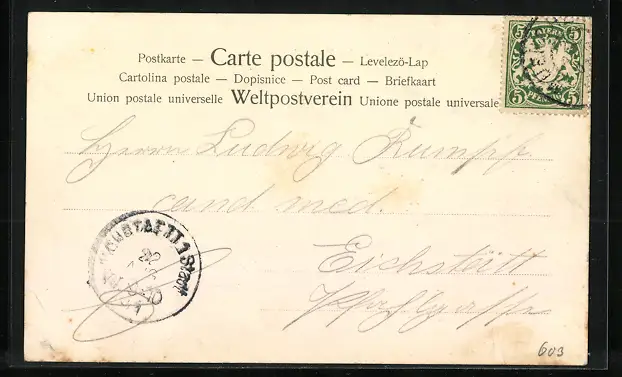 Postkarte — Carte postale — Levelezö-Lap
Cartolina postale — Dopisnice — Post card — Briefkaart
Union postale universelle Weltpostverein Unione postale universale
BAYERN
5 5
5 PFENNIG 5
Herrn Ludwig Rumpf
cand med.
Eichstätt
603